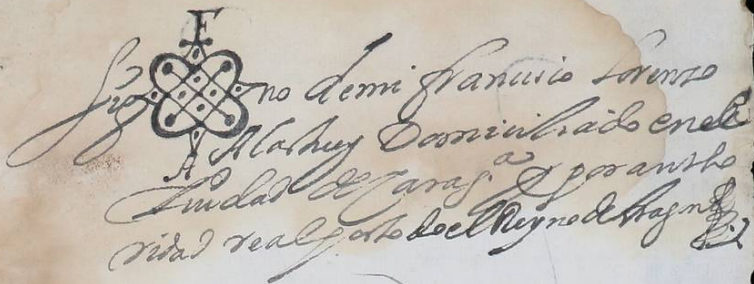 F
Sig no de mi Francisco Lorenzo
A Alastuey Domiciliado en la
Ciudad de Zarag.ª y por autho
ridad real por todo el Reyno de Aragn